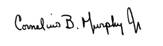 Cornelius B. Murphy Jr